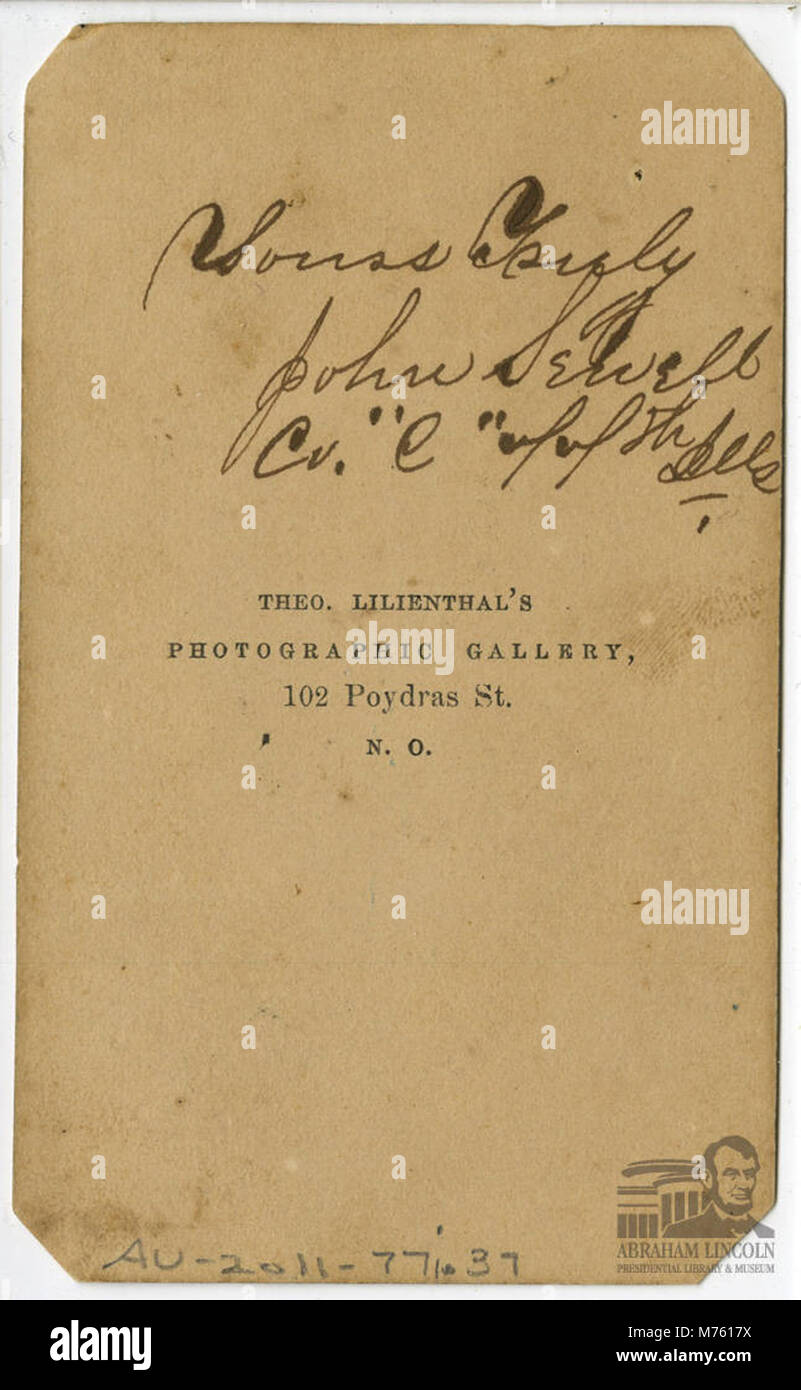 Yours Truly
John Sewell
Co. "C" 77th Ills
THEO. LILIENTHAL'S
PHOTOGRAPHIC GALLERY,
102 Poydras St.
N. O.
AU-2011-77.37
ABRAHAM LINCOLN
PRESIDENTIAL LIBRARY & MUSEUM
a alamy
a alamy
alamy
Image ID: M7617X
www.alamy.com